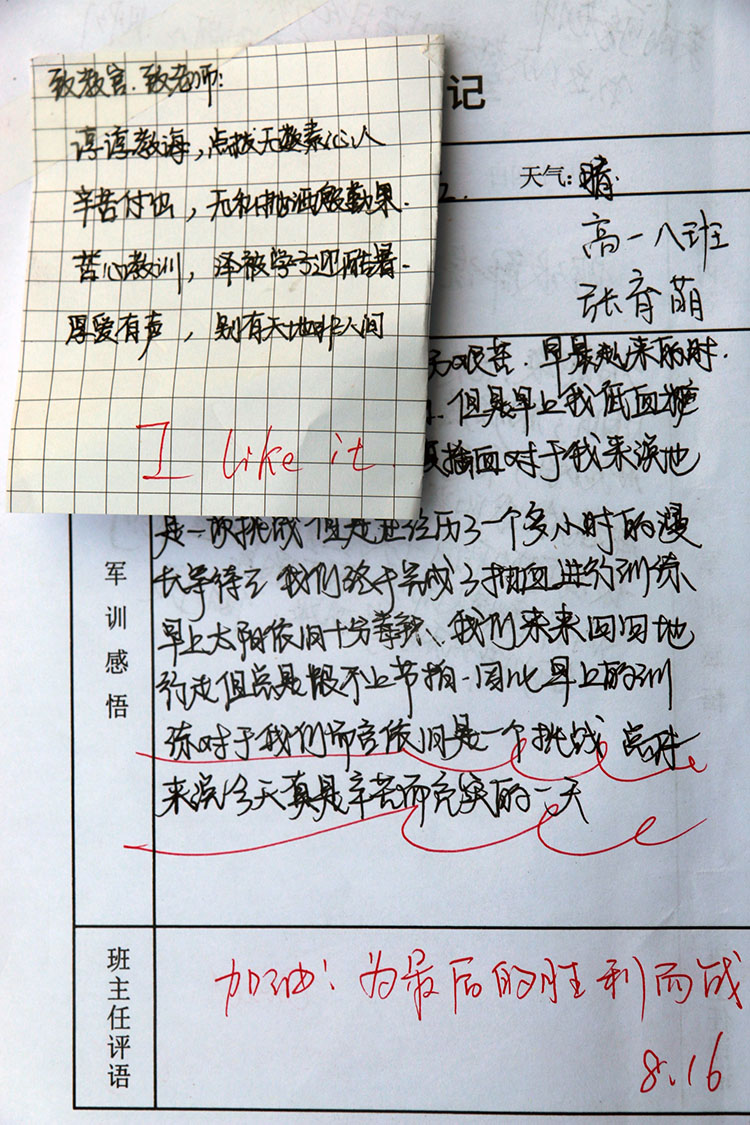 致教官、致老师：
谆谆教诲，点拨无数素心人
辛苦付出，无私挥洒殷勤果.
苦心教训，泽被学子还酷暑.
厚爱有声，别有天地非人间
I like it.
记
天气：晴
高一八班
张育萌
艰苦.早晨起来的时.
但是早上我低血糖
抽血对于我来说也
是一项挑战但是在经历了一个多小时的漫
长等待之 我们终于完成了抽血进行训练、
早上太阳依旧十分毒辣、我们来来回回地
行走但总是跟不上节拍.因此早上的训
练对于我们而言依旧是一个挑战 总体
来说今天真是辛苦而充实的一天
军训感悟
班主任评语
加油！为最后的胜利而战
8.16